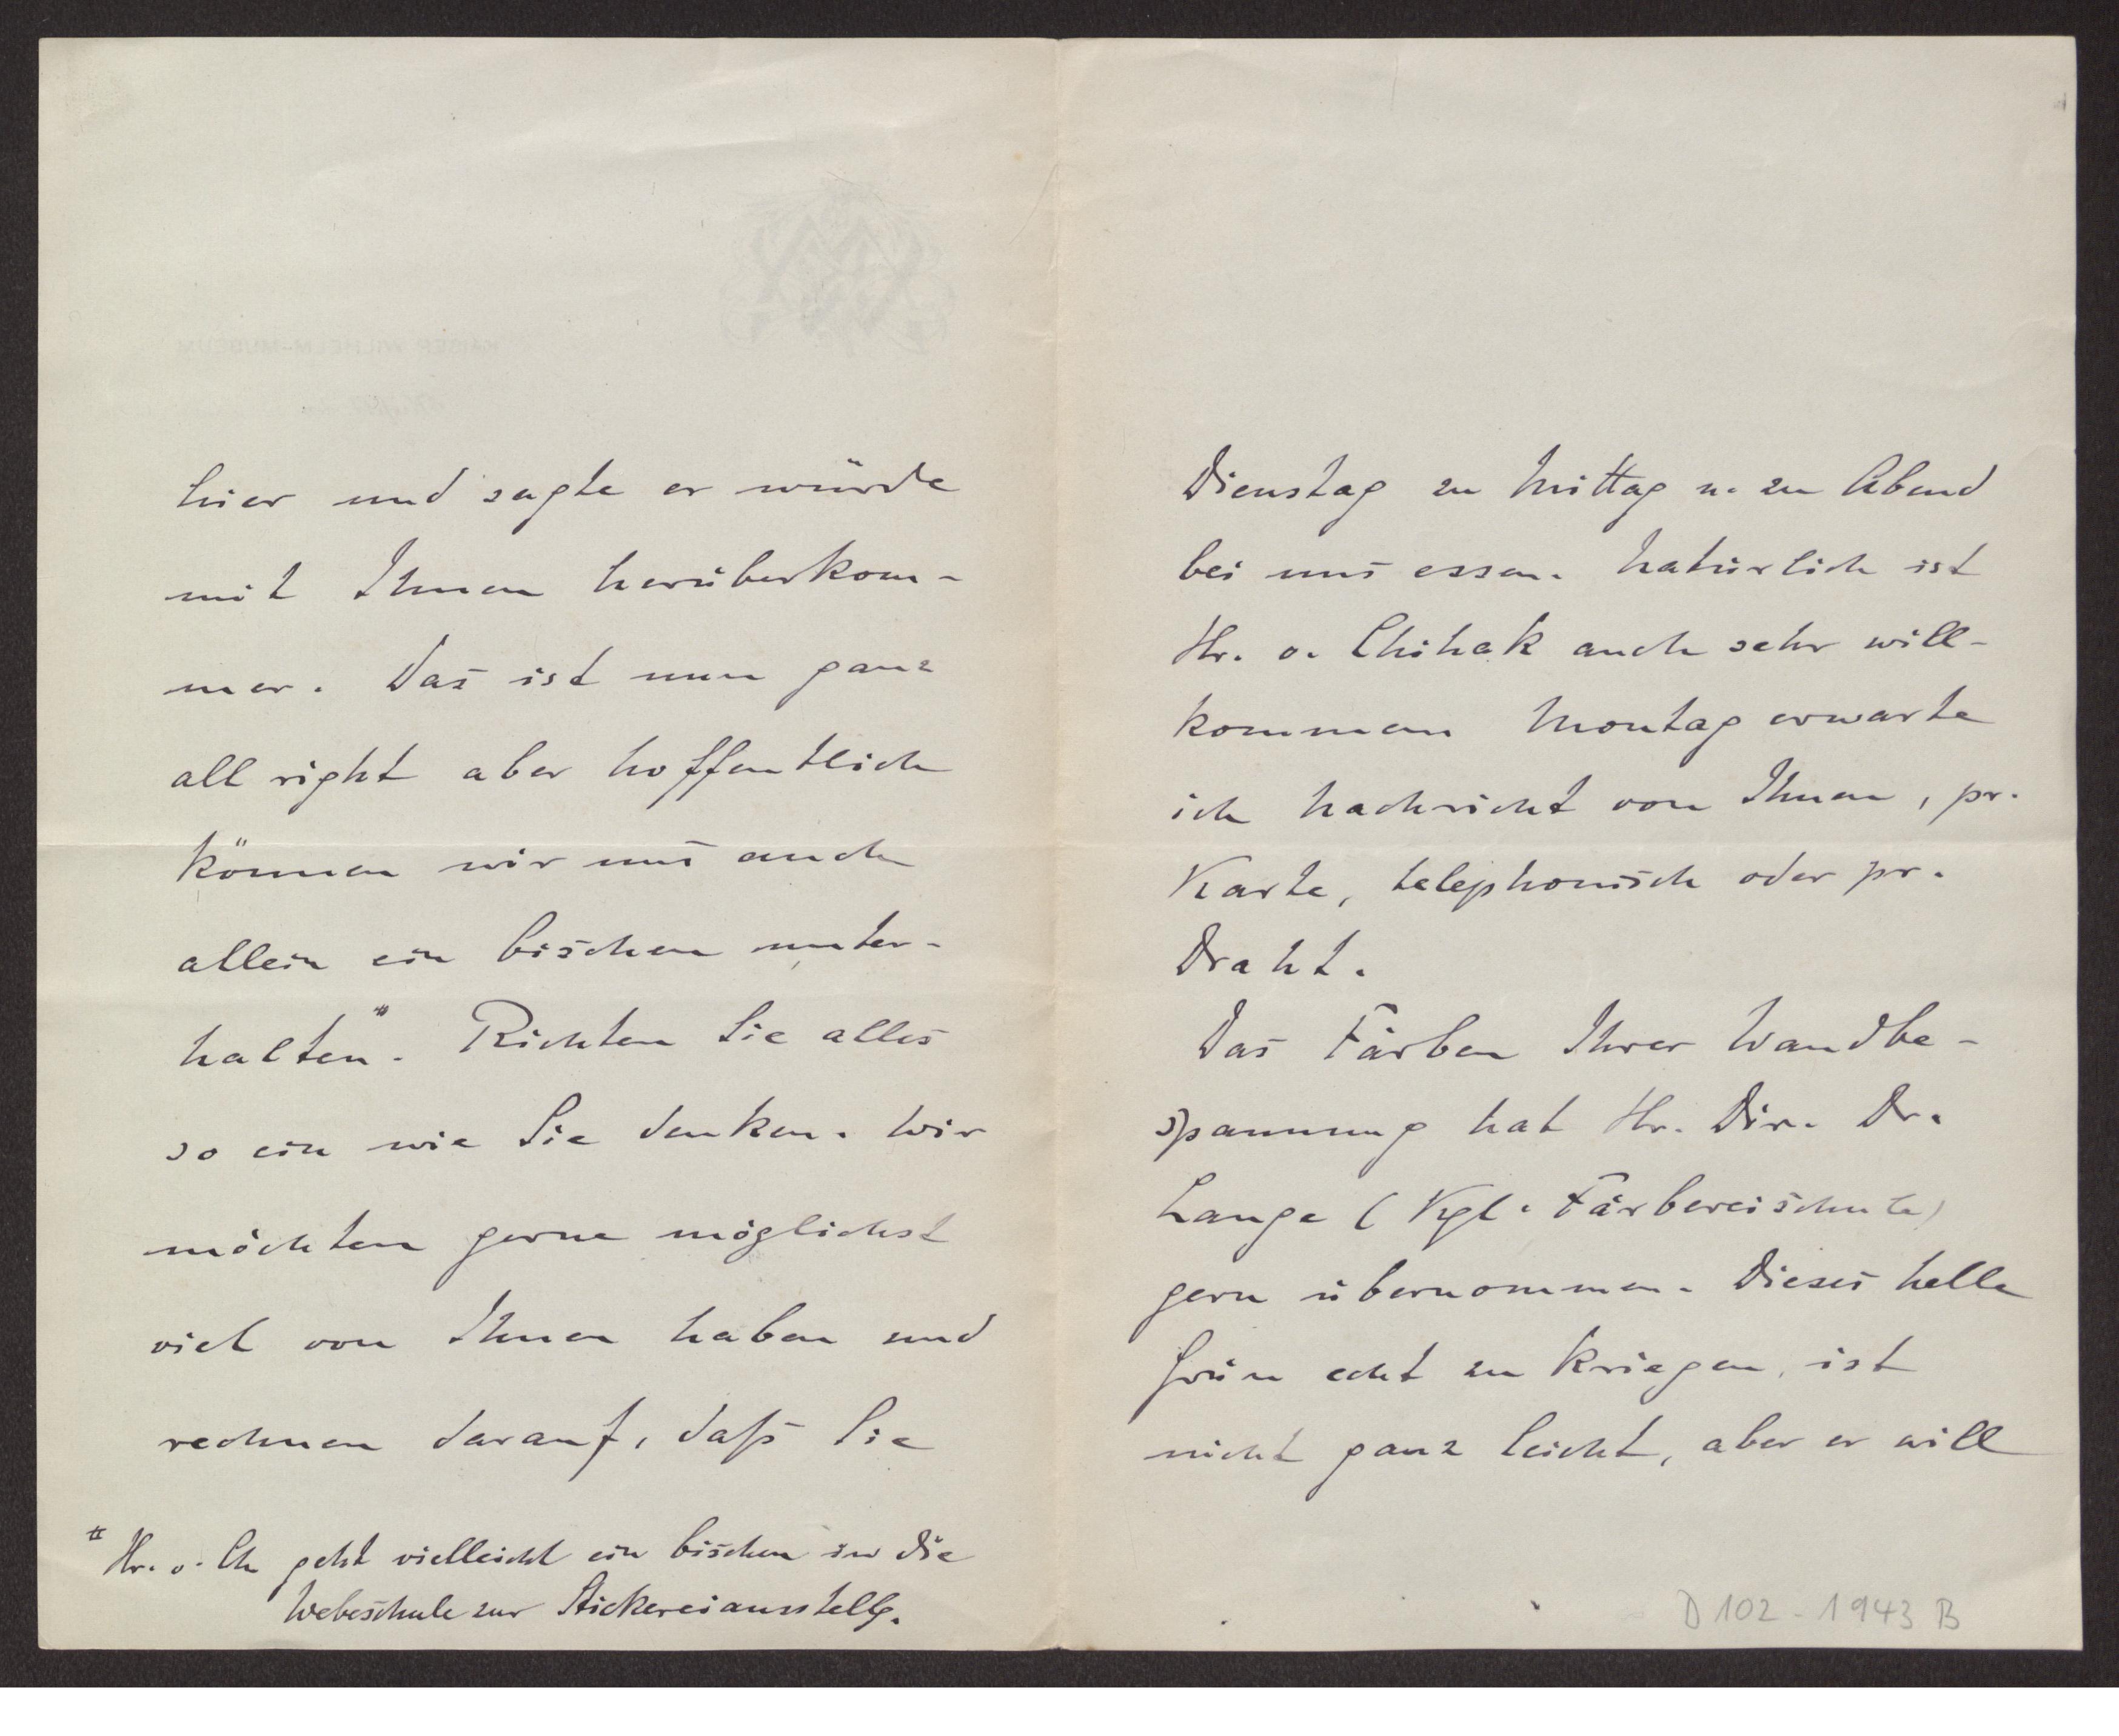 hier und sagte er würde
mit Ihnen herüberkom-
mer. Das ist nun ganz
all right aber hoffentlich
können wir uns auch
allein ein bischen unter-
halten #. Richten Sie alles
so ein wie Sie denken. Wir
möchten gerne möglichst
viel von Ihnen haben und
rechnen darauf, daß Sie
# Hr. v. Ch geht vielleicht ein bischen in die
Webeschule zur Stickereiausstellg.
Dienstag zu Mittag u. zu Abend
bei uns essen. Natürlich ist
Hr. v. Chihak auch sehr will-
kommen Montag erwarte
ich Nachricht von Ihnen, pr.
Karte, telephonisch oder pr.
Draht.
Das Färben Ihrer Wandbe-
spannung hat Hr. Dir. Dr.
Lange (Kgl. Färbereischule)
gern übernommen. Dieses helle
Grün echt zu kriegen, ist
nicht ganz leicht, aber er will
D 102 - 1943 B
KAISER WILHELM-MUSEUM